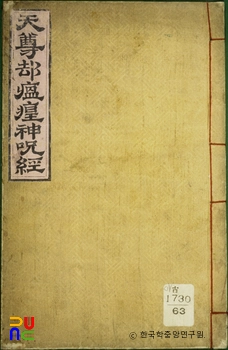 天尊却瘟𤶊神呪經
古
1730
63
PUN
©한국학중앙연구원